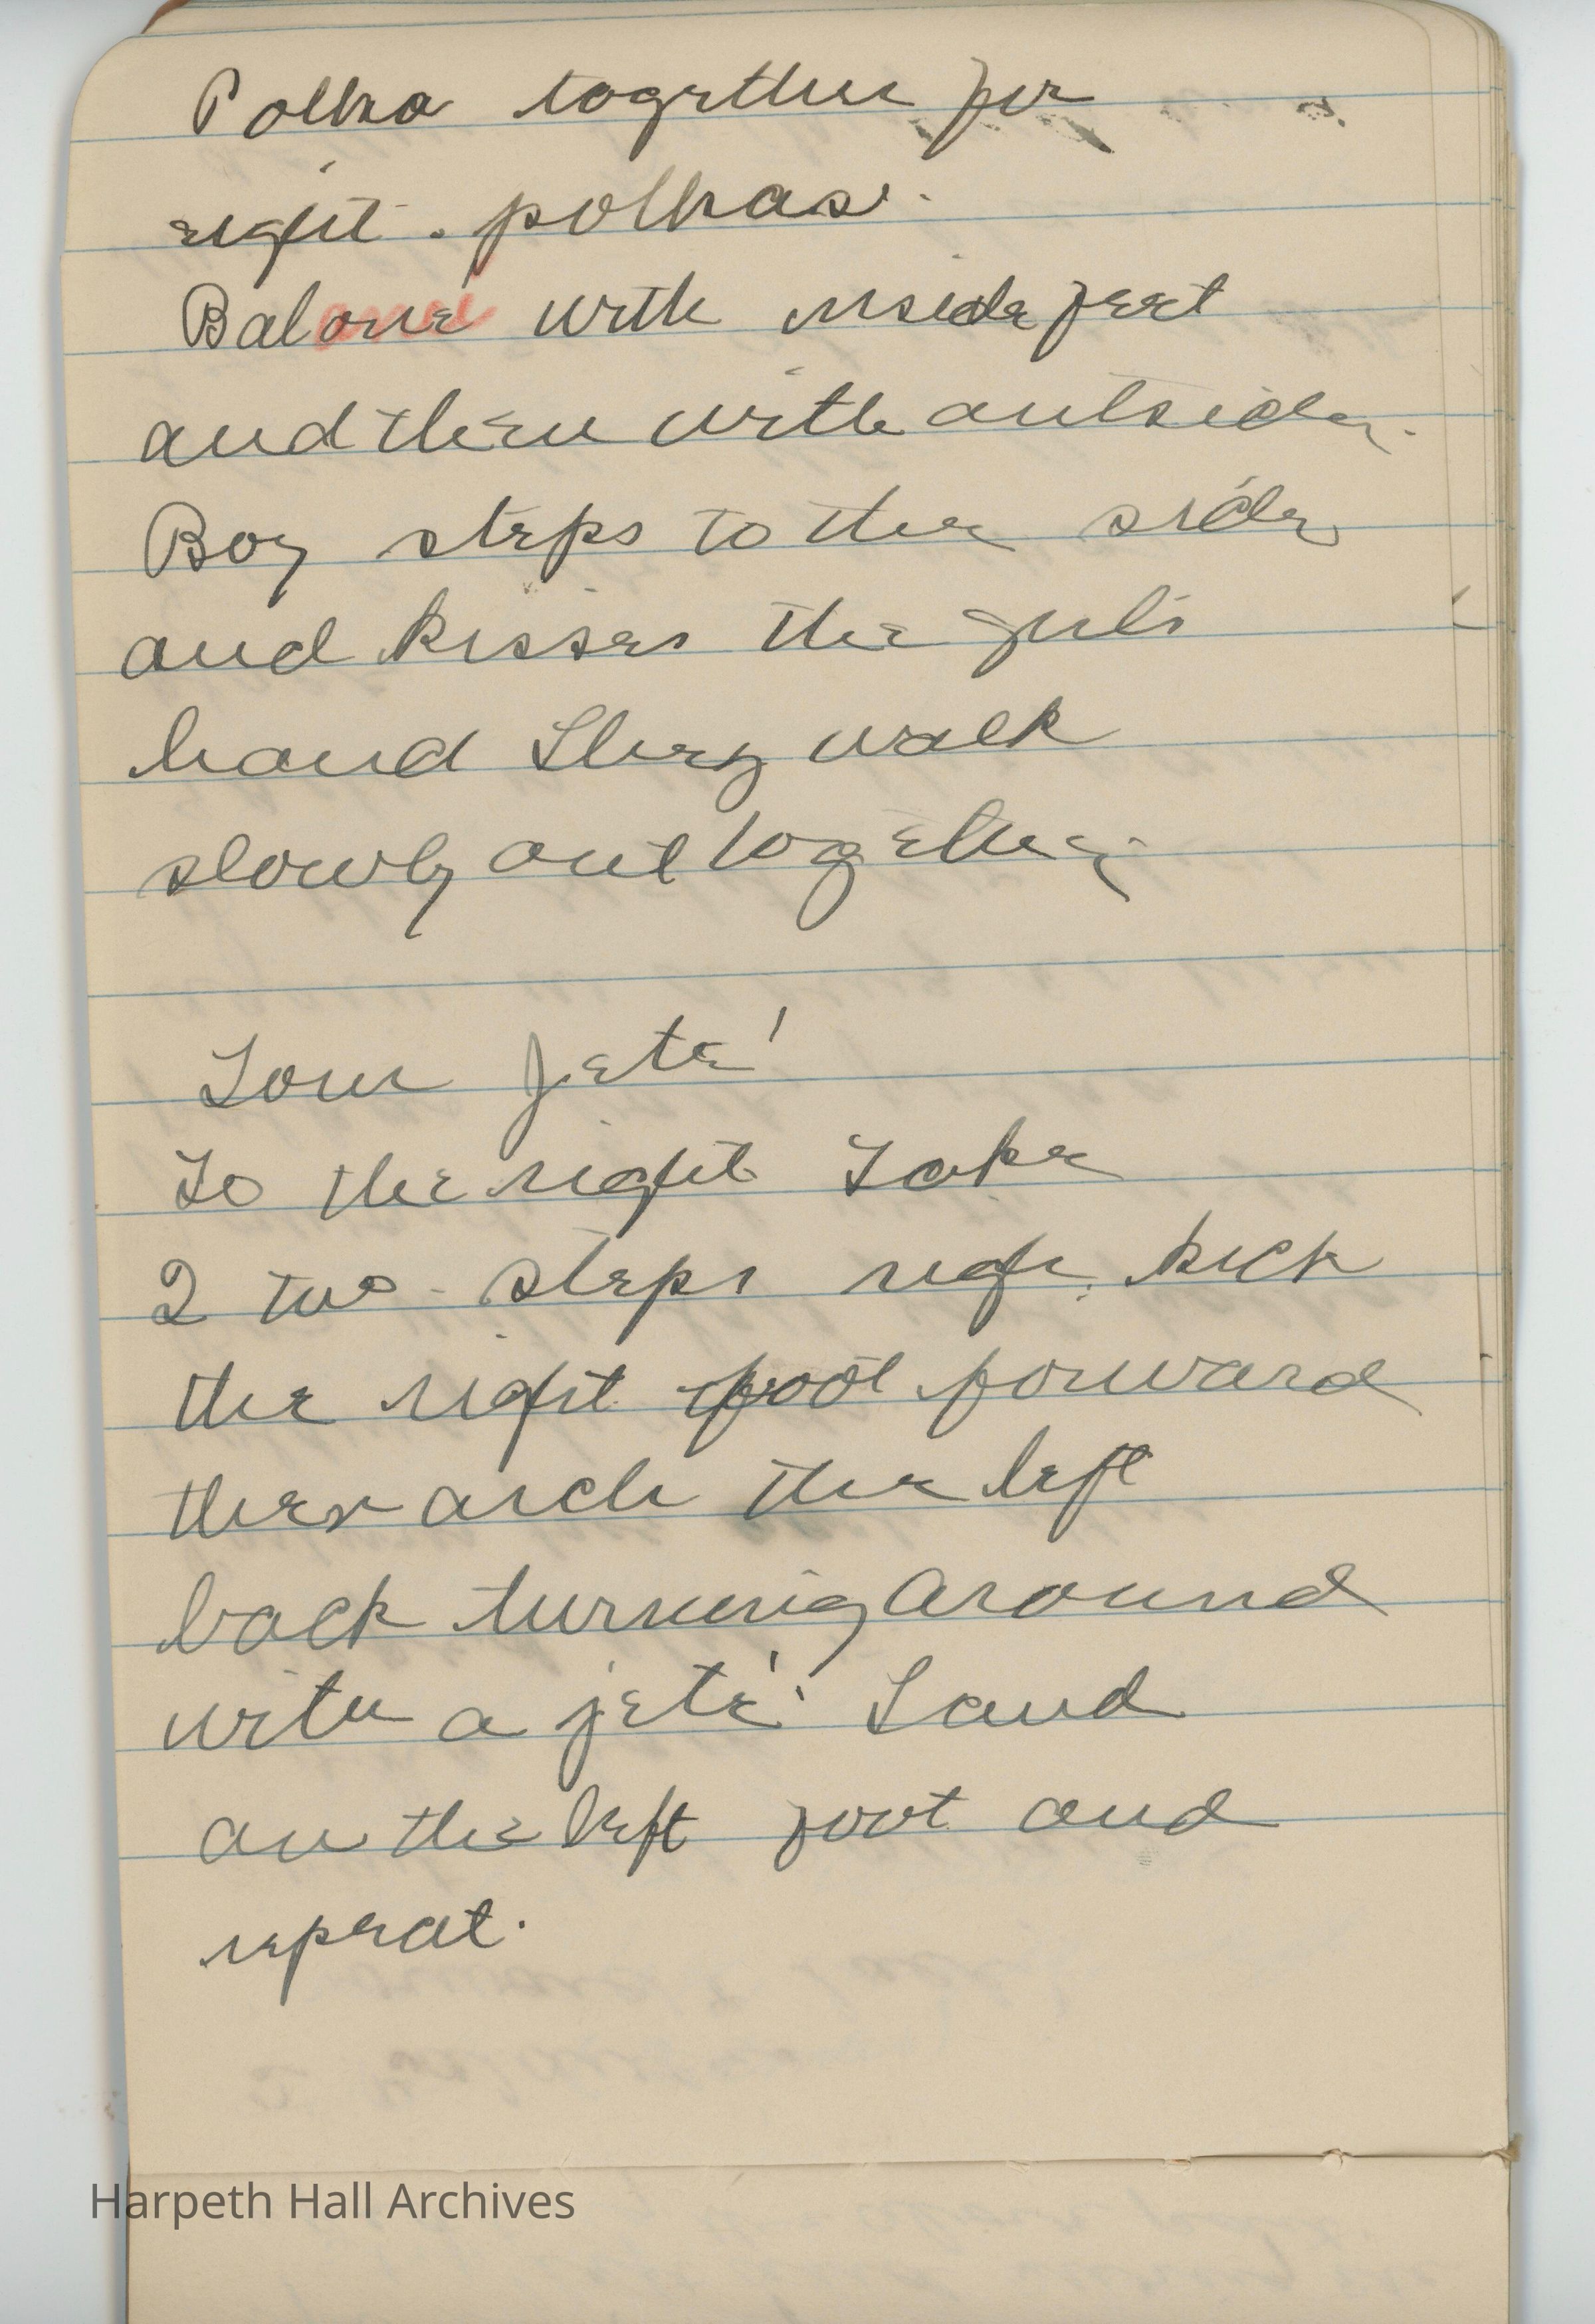 Polka together for
eight polkas.
Balance with inside feet
and then with outside.
Boy steps to the side
and kisses the girls
hand They walk
slowly out together.
Tour Jeté
To the right Take
2 two-steps right. kick
the right foot forward
then arch the left
back turning around
with a jeté. Land
on the left foot and
repeat.
Harpeth Hall Archives